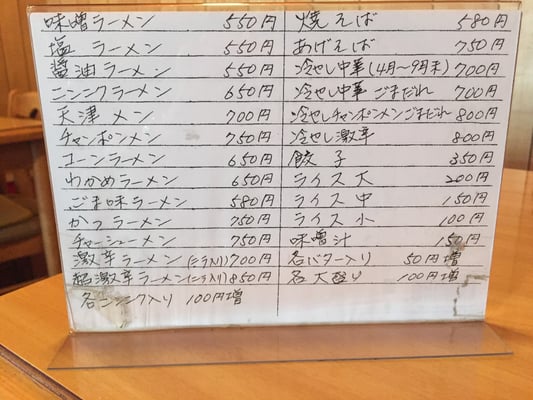 味噌ラーメン 550円
塩 ラーメン 550円
醤油ラーメン 550円
ニンニクラーメン 650円
天津メン 700円
チャンポンメン 750円
コーンラーメン 650円
わかめラーメン 650円
ごま味ラーメン 580円
かつラーメン 750円
チャーシューメン 750円
激辛ラーメン(ニラ入り) 700円
超激辛ラーメン(ニラ入り) 850円
各ニンニク入り 100円増
焼そば 580円
あげそば 750円
冷やし中華(4月〜9月末) 700円
冷やし中華 ごまだれ 700円
冷やしチャンポンメンごまだれ 800円
冷やし激辛 800円
餃子 350円
ライス大 200円
ライス中 150円
ライス小 100円
味噌汁 150円
各バター入り 50円増
各大盛り 100円増